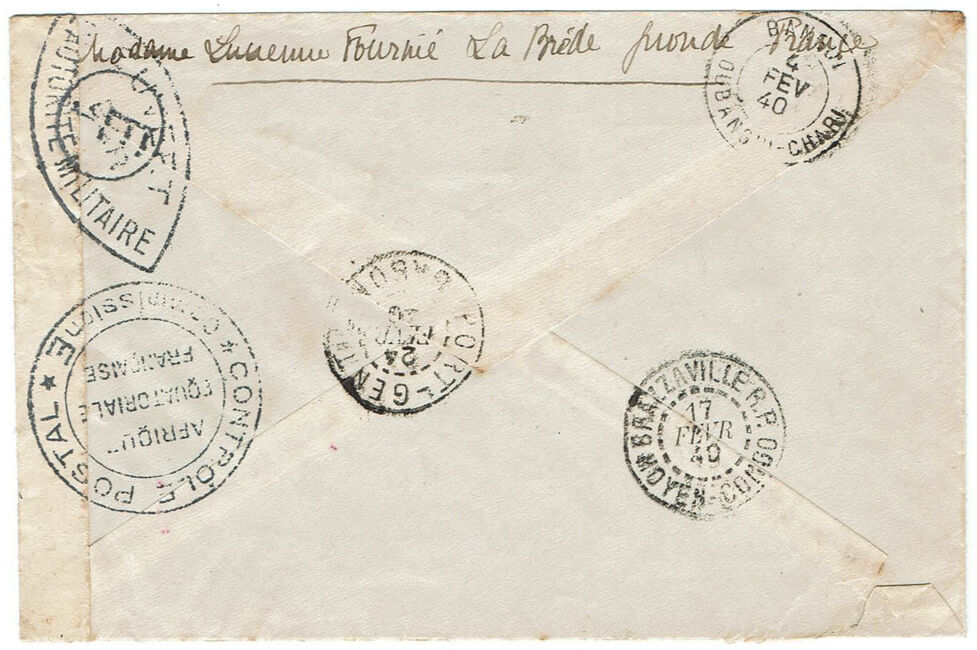 Madame Lucienne Fournié La Brède Gironde France
BIRAO
4
FEV
40
OUBANGUI-CHARI
OUVERT
AUTORITÉ MILITAIRE
PORT-GENTIL
GABON
24
FEVR
BRAZZAVILLE R.P.
17
FEVR
40
MOYEN-CONGO
★ CONTRÔLE POSTAL ★
Commission E
AFRIQUE
EQUATORIALE
FRANÇAISE